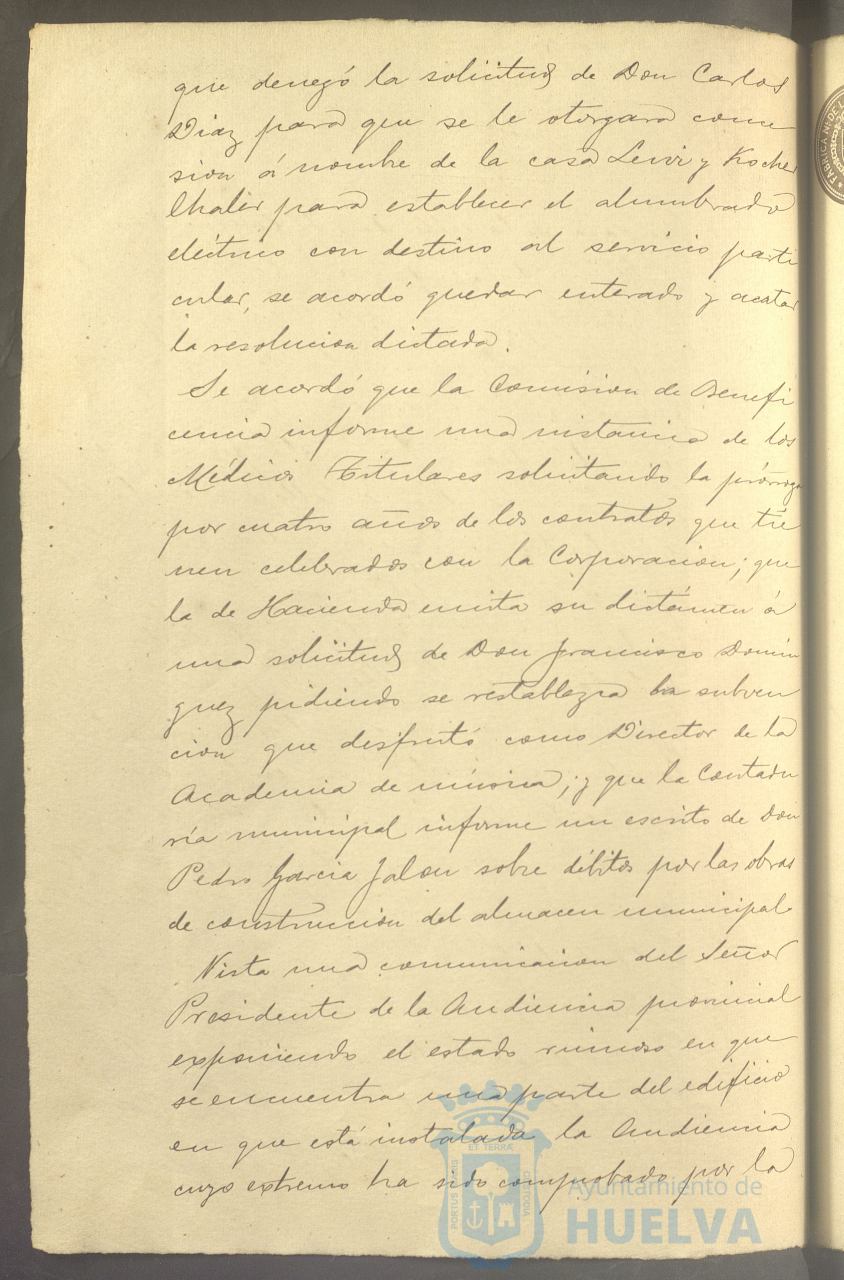 que denegó la solicitud de Don Carlos
Diaz para que se le otorgara conce
sion á nombre de la casa Levi y Kocher
thaler para establecer el alumbrado
eléctrico con destino al servicio parti
cular, se acordó quedar enterado y acatar
la resolucion dictada.
Se acordó que la Comision de Benefi
cencia informe una instancia de los
Médicos Titulares solicitando la prórroga
por cuatro años de los contratos que tie
nen celebrados con la Corporacion; que
la de Hacienda emita su dictámen á
una solicitud de Don Francisco Domin
guez pidiendo se restablezca la subven
cion que disfrutó como Director de la
Academia de música; y que la Contadu
ría municipal informe un escrito de Don
Pedro Garcia Jalon sobre débitos por las obras
de construccion del almacen municipal.
Vista una comunicacion del Señor
Presidente de la Audiencia provincial
exponiendo el estado ruinoso en que
se encuentra una parte del edificio
en que está instalada la Audiencia
cuyo extremo ha sido comprobado por la
FABRICA NL DE
PORTUS MARIS
ET TERRÆ
CUSTODIA
Ayuntamiento de
HUELVA